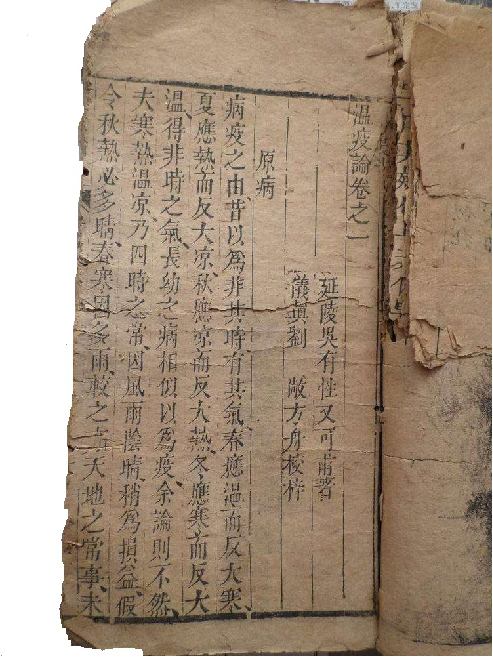 溫疫論卷之一
延陵吳有性又可甫著
儀眞劉　敞方舟校梓
原病
病疫之由昔以為非其時有其氣春應溫而反大寒
夏應熱而反大凉秋應凉而反大熱冬應寒而反大
溫得非時之氣長幼之病相似以為疫余論則不然
夫寒熱溫凉乃四時之常因風雨陰晴稍為損益假
令秋熱必多晴春寒因多雨較之亦天地之常事未